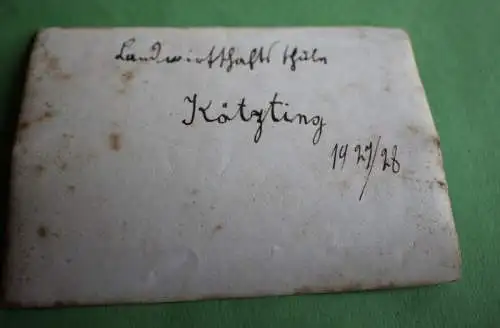 Landwirtschaftsschule
Kötzting
1927/28